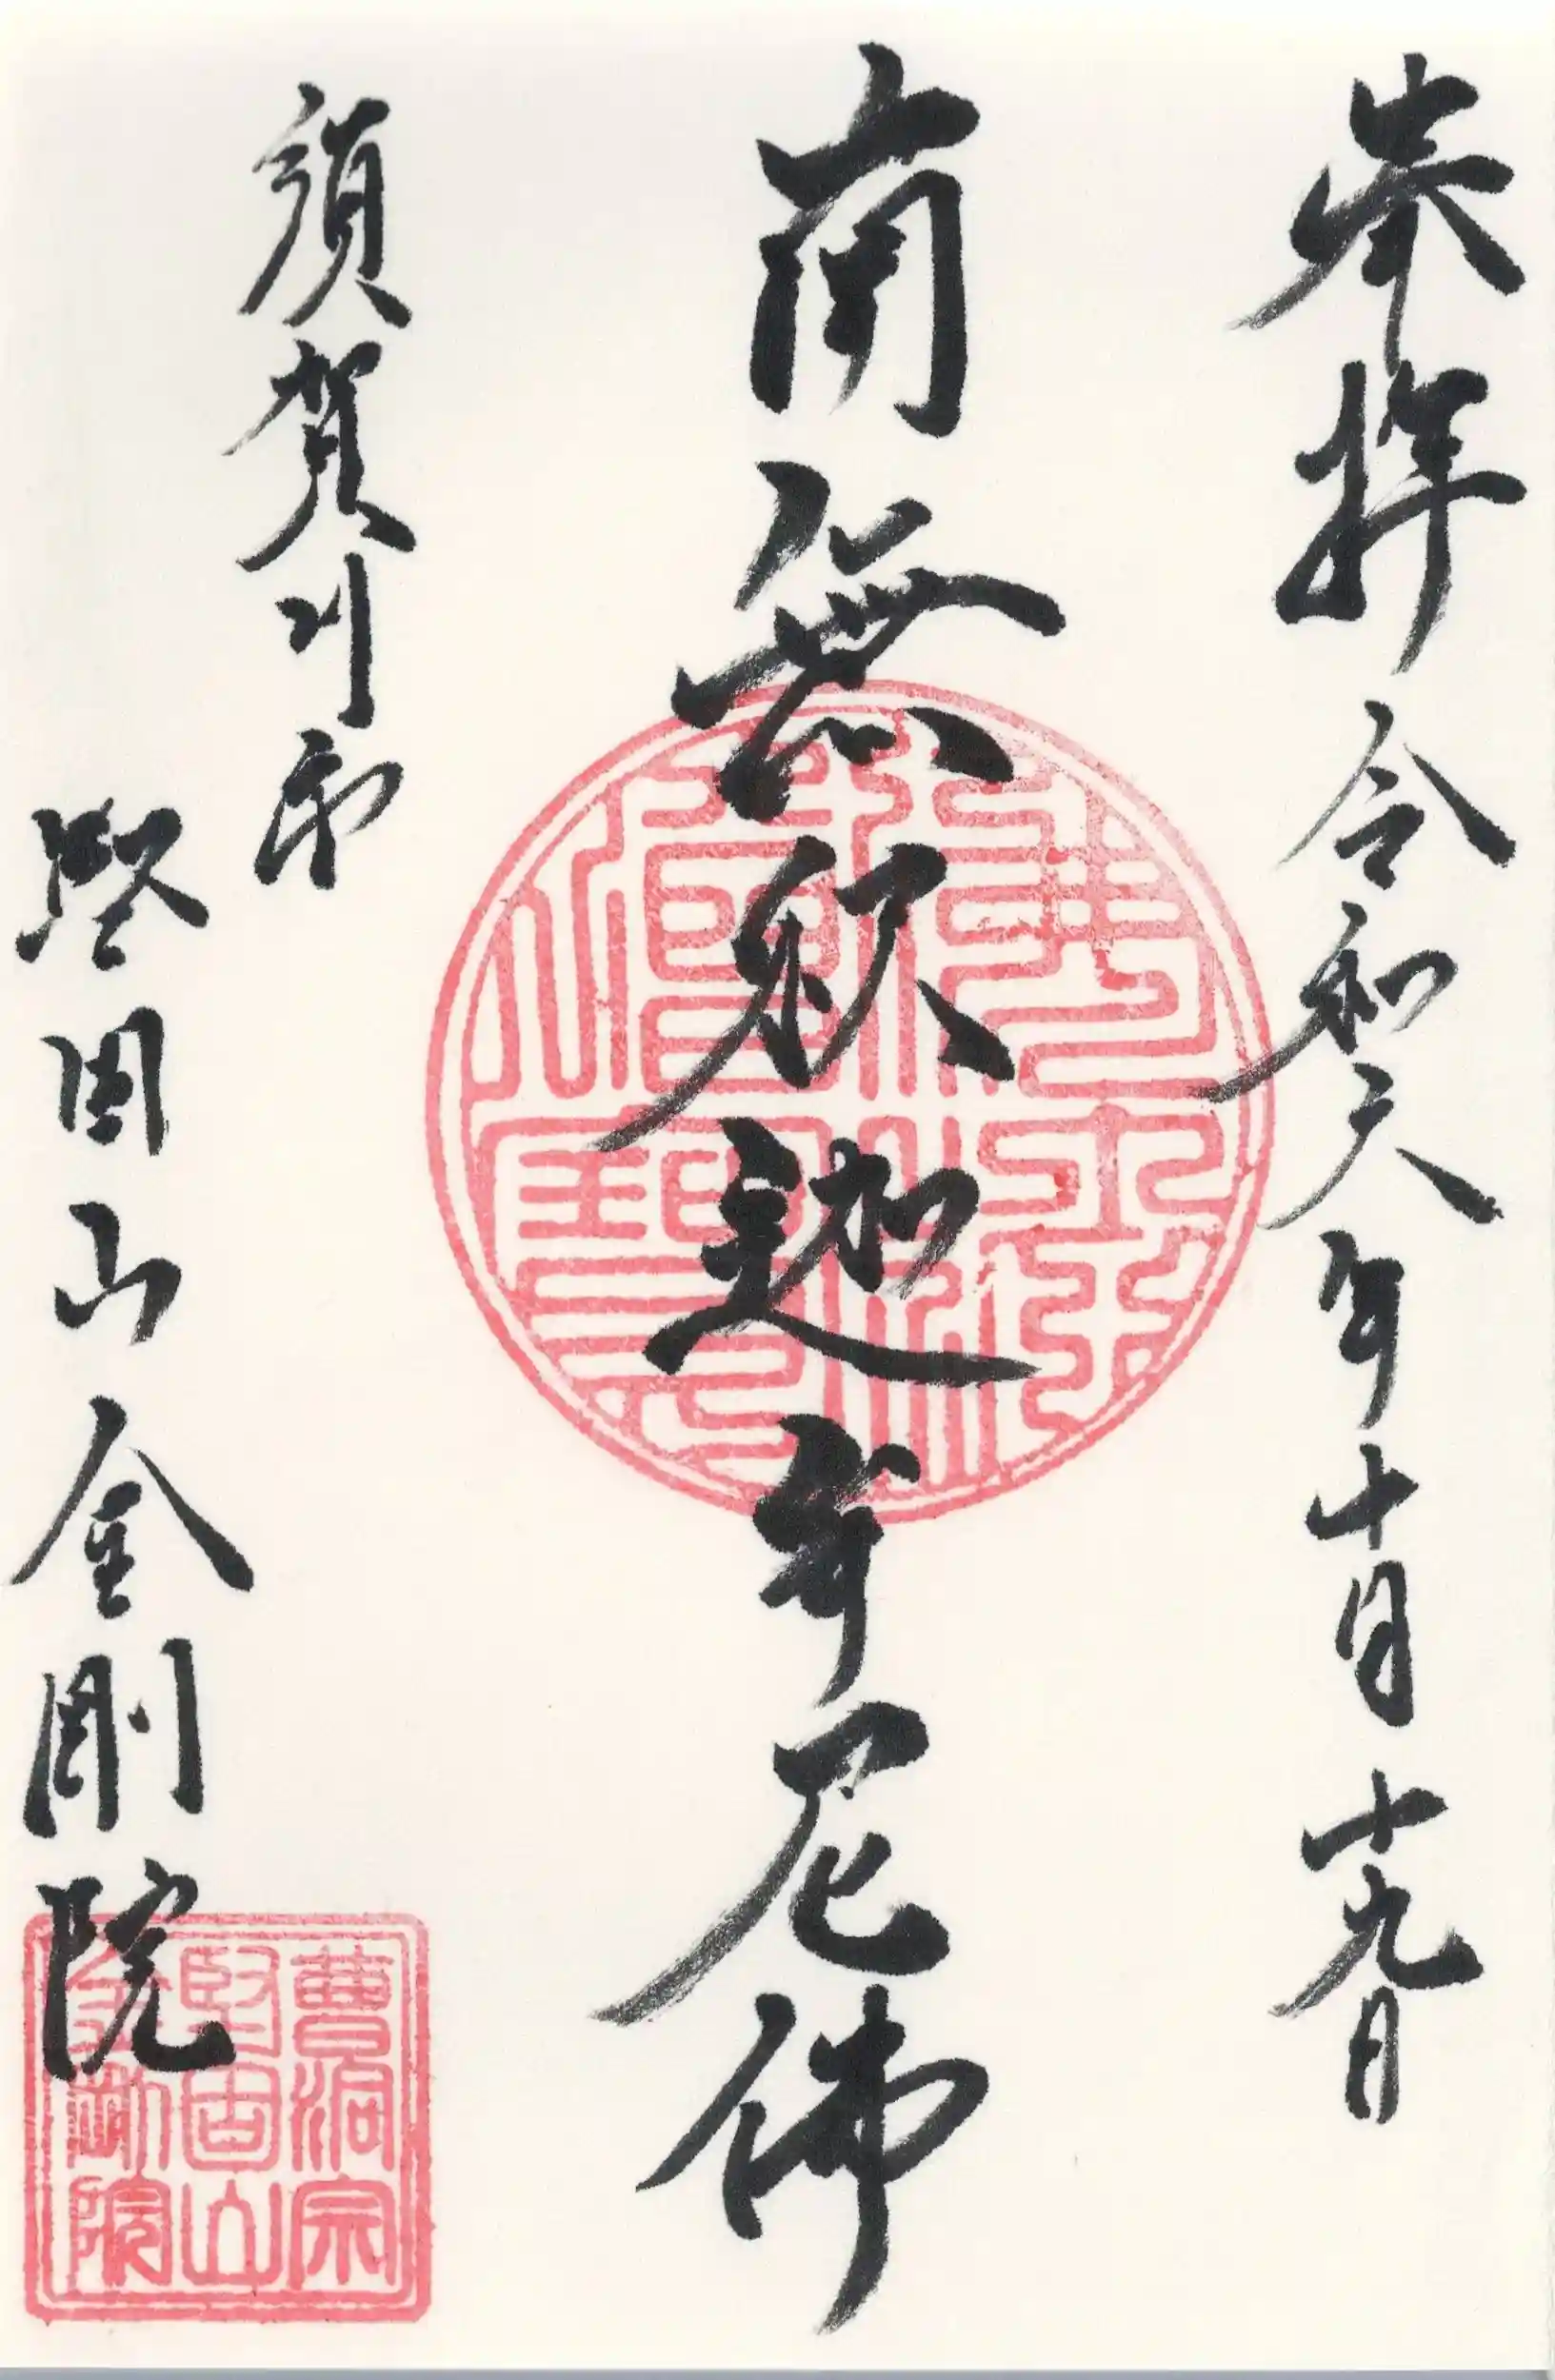 奉拝 令和六年十月十九日
南無釈迦牟尼佛
須賀川市
堅固山金剛院
曹洞宗
堅固山
金剛院